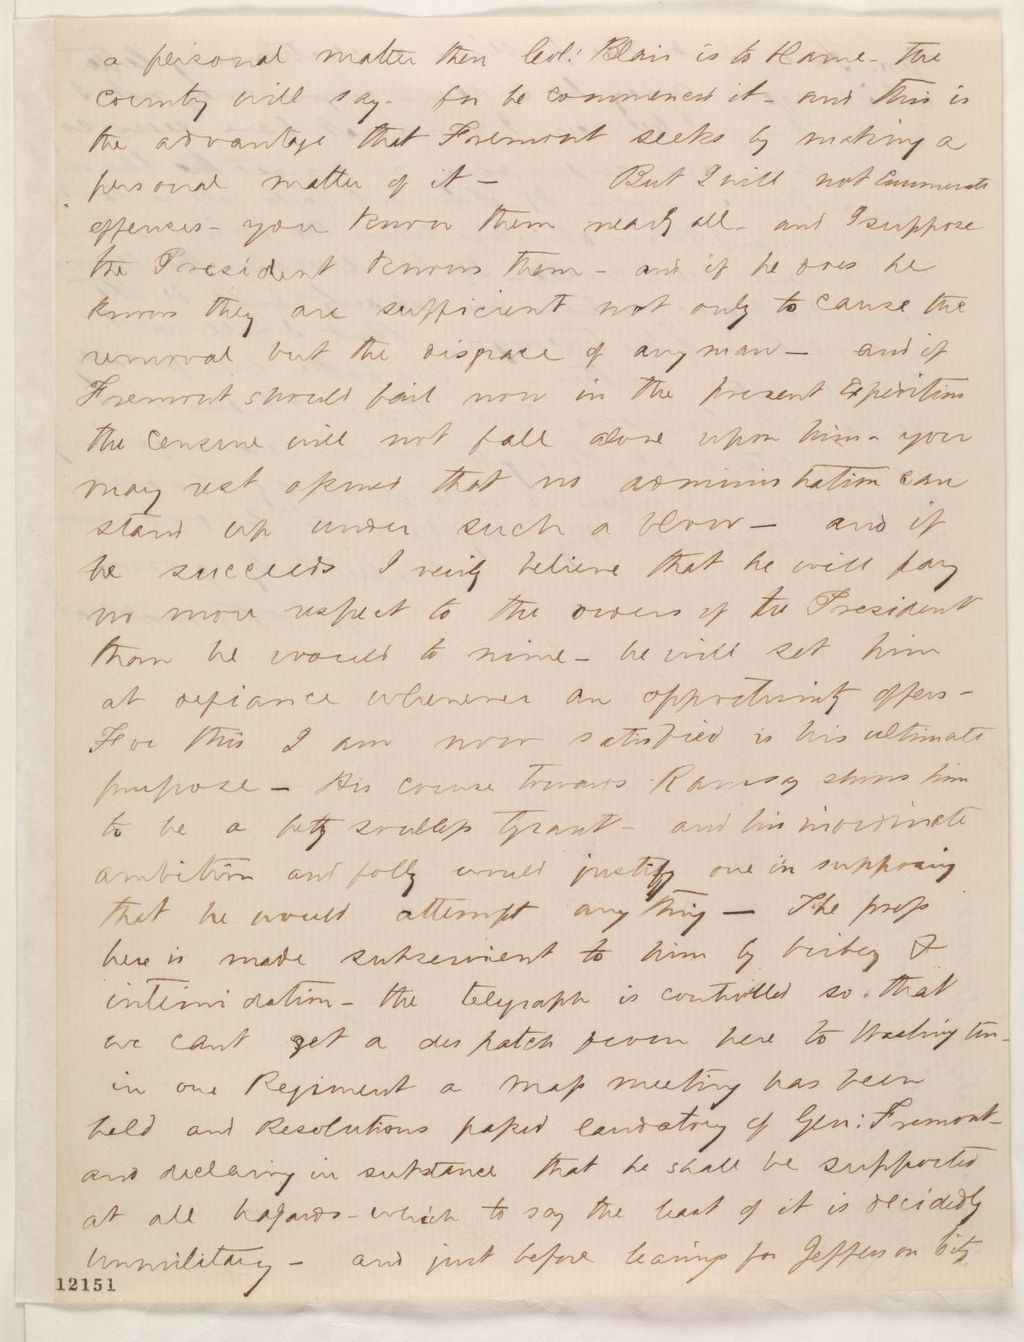 a personal matter then Col: Blair is to blame - the
country will say - for he commenced it - and this is
the advantage that Fremont seeks by making a
personal matter of it - But I will not enumerate
offences - you know them nearly all - and I suppose
the President knows them - and if he does he
knows they are sufficient not only to cause the
removal but the disgrace of any man - and if
Fremont should fail now in the present Expedition
the censure will not fall alone upon him - you
may rest assured that no administration can
stand up under such a blow - and if
he succeeds I verily believe that he will pay
no more respect to the orders of the President
than he would to mine - he will set him
at defiance whenever an opportunity offers -
For this I am now satisfied is his ultimate
purpose - His course towards Ramsay shows him
to be a petty soulless tyrant - and his inordinate
ambition and folly would justify one in supposing
that he would attempt any thing - The press
here is made subservient to him by bribery &
intimidation - the telegraph is controlled so that
we cant get a despatch from here to Washington -
in one Regiment a mass meeting has been
held and Resolutions passed laudatory of Gen: Fremont -
and declaring in substance that he shall be supported
at all hazards - which to say the least of it is decidedly
unmilitary - and just before leaving for Jefferson City
12151